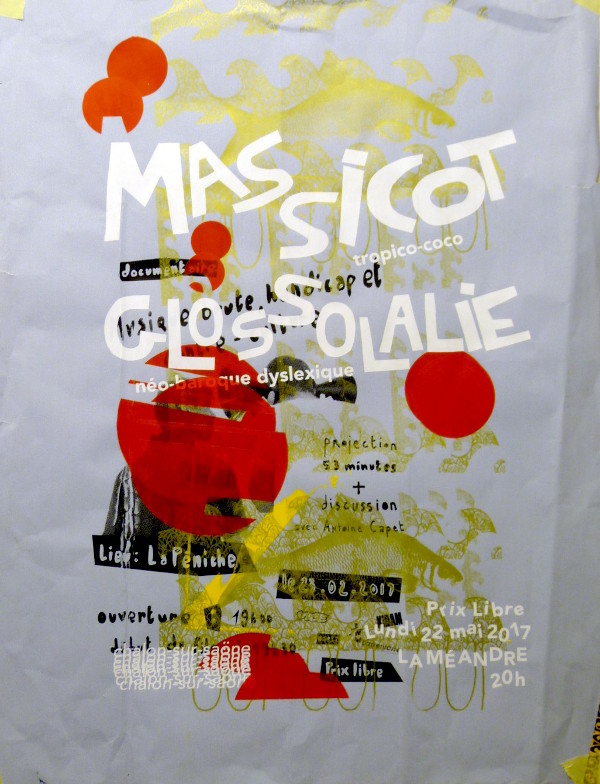 MASSICOT
tropico-coco
document
Musique brute, handicap et
GLOSSOLALIE
néo-baroque dyslexique
projection
53 minutes
+
discussion
avec Antoine Capet
Lieu: La Péniche
le 23.02.2017
ouverture
19h00
Prix Libre
Lundi 22 mai 2017
LA MÉANDRE
20h
chalon-sur-saône
chalon-sur-saône
Prix libre